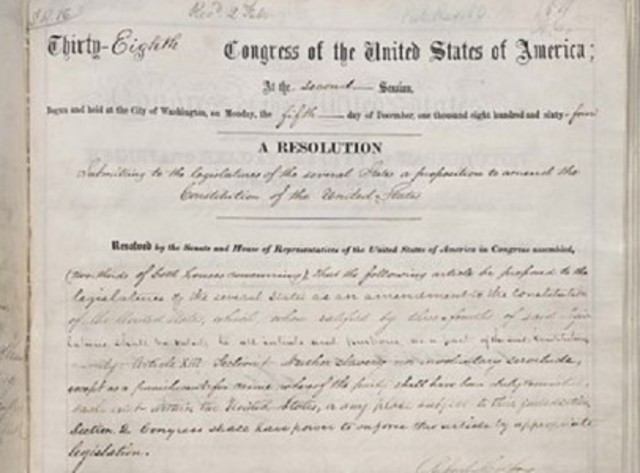 Thirty-Eighth Congress of the United States of America;
At the second Session,
Begun and held at the City of Washington, on Monday, the fifth day of December, one thousand eight hundred and sixty-four
A RESOLUTION
Submitting to the legislatures of the several States a proposition to amend the
Constitution of the United States
Resolved by the Senate and House of Representatives of the United States of America in Congress assembled,
(two thirds of both houses concurring), That the following article be proposed to the
legislatures of the several States as an amendment to the Constitution
of the United States, which, when ratified by three-fourths of said
shall be valid, to all intents and purposes, as a part of the said Constitution
namely: Article XIII. Section 1. Neither slavery nor involuntary servitude,
except as a punishment for crime whereof the party shall have been duly convicted,
shall exist within the United States, or any place subject to their jurisdiction
Section 2. Congress shall have power to enforce this article by appropriate
legislation.